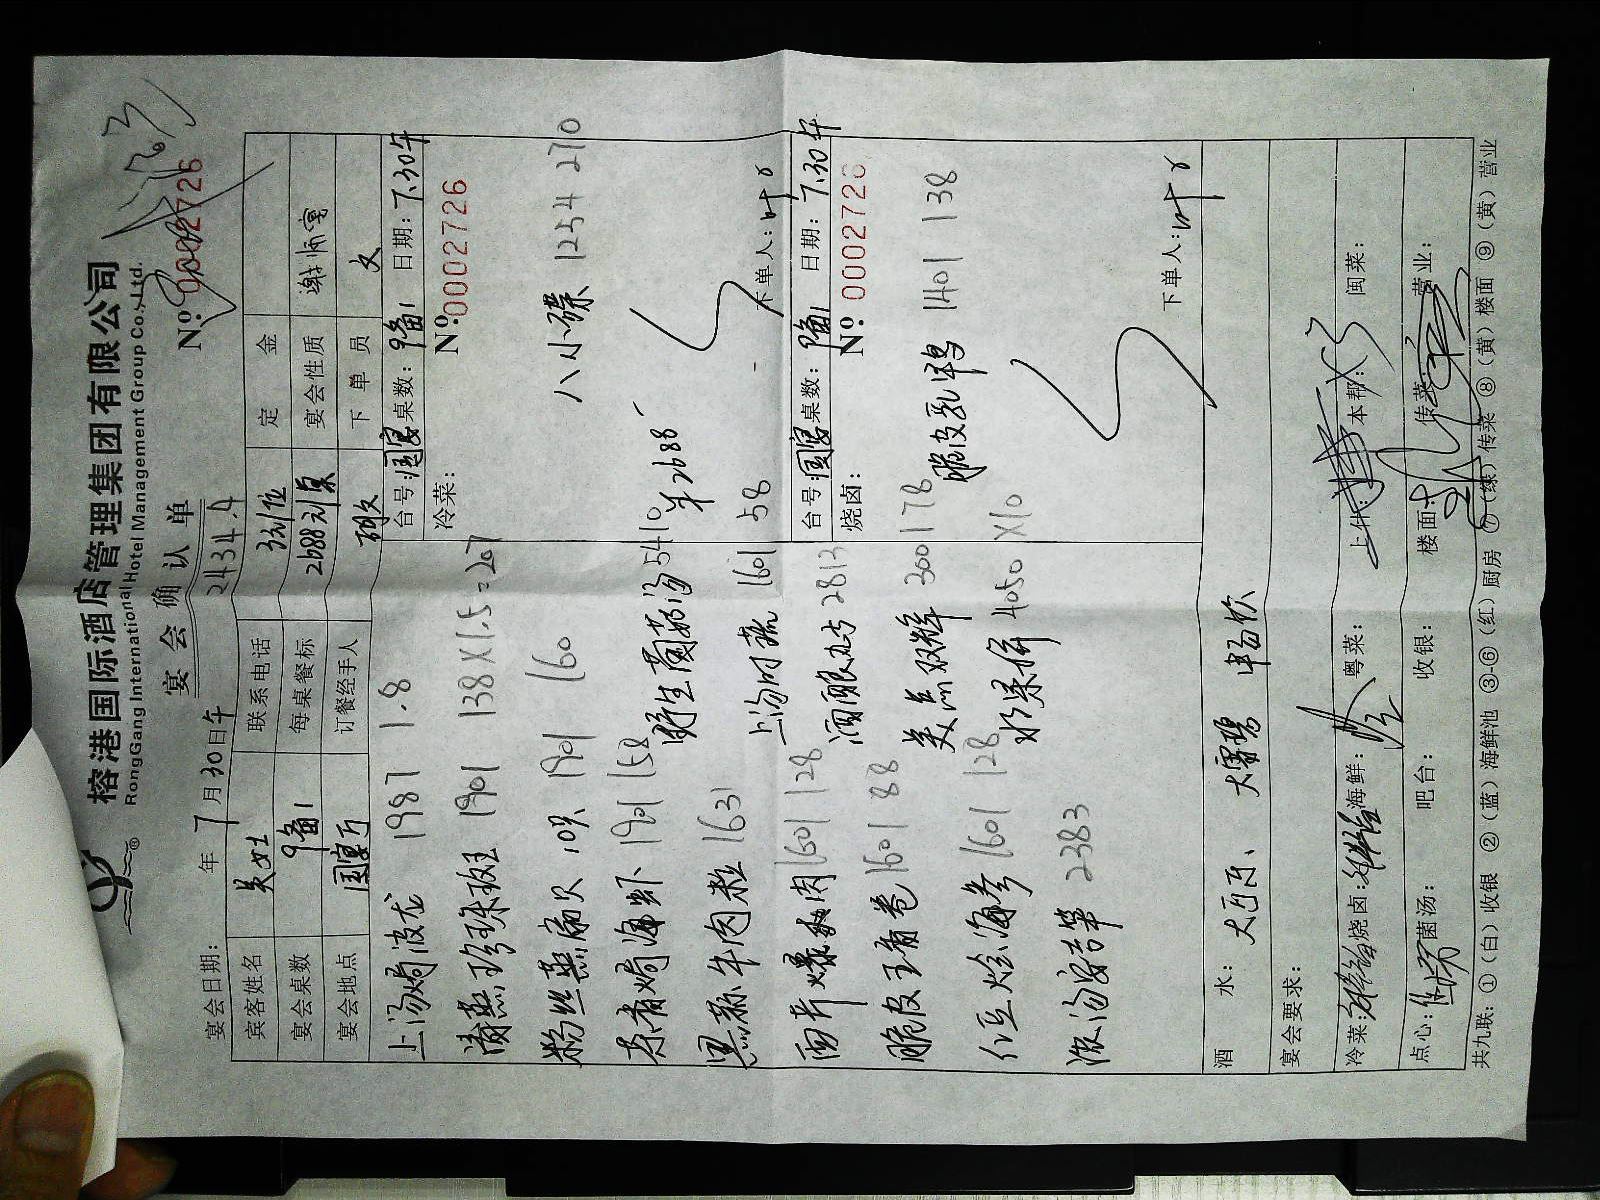 榕港国际酒店管理集团有限公司
RongGang International Hotel Management Group Co.,Ltd.
宴会确认单
№ 0002726
2434.4
宴会日期: 年 7 月 30日午
宾客姓名 吴女士 联系电话 定金
宴会桌数 9备1 每桌餐标 2688 宴会性质 谢师宴
宴会地点 国宴厅 订餐经手人 下单员 文
上汤焗波龙 1987 1.8
清蒸珍珠斑 1901 138X1.5=207
粉丝蒸扇贝 10只 1901 160
茶香焗海虾 1901 158
黑蒜牛肉粒 1631
1601 128
脆皮 卷 1601 88
仁豆烩海参 1601 128
浓汤 笋 2383
野生菌 汤 5410
上汤时蔬 1601 58
2813
美点双辉 300178
水果拼 4050 X10
台号: 国宴 桌数: 9备1 日期: 7.30午
冷菜:
№: 0002726
八小碟 1254 270
单2688
下单人: 叶
台号: 国宴 桌数: 9备1 日期: 7.30午
烧卤:
№ 0002726
脆皮乳鸽 1401 138
下单人: 叶
酒水: 大 、 大雪碧
宴会要求:
冷菜: 烧卤: 海鲜: 粤菜: 上什: 本帮: 闽菜:
点心: 菌汤: 吧台: 收银: 楼面: 传菜: 营业:
共九联: ①(白)收银 ②(蓝)海鲜池 ③-⑥(红)厨房 ⑦(绿)传菜 ⑧(黄)楼面 ⑨(黄)营业